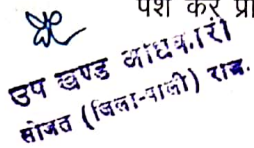 पेश करें प्रा
उप खण्ड अधिकारी
सोजत (जिला-पाली) राज.